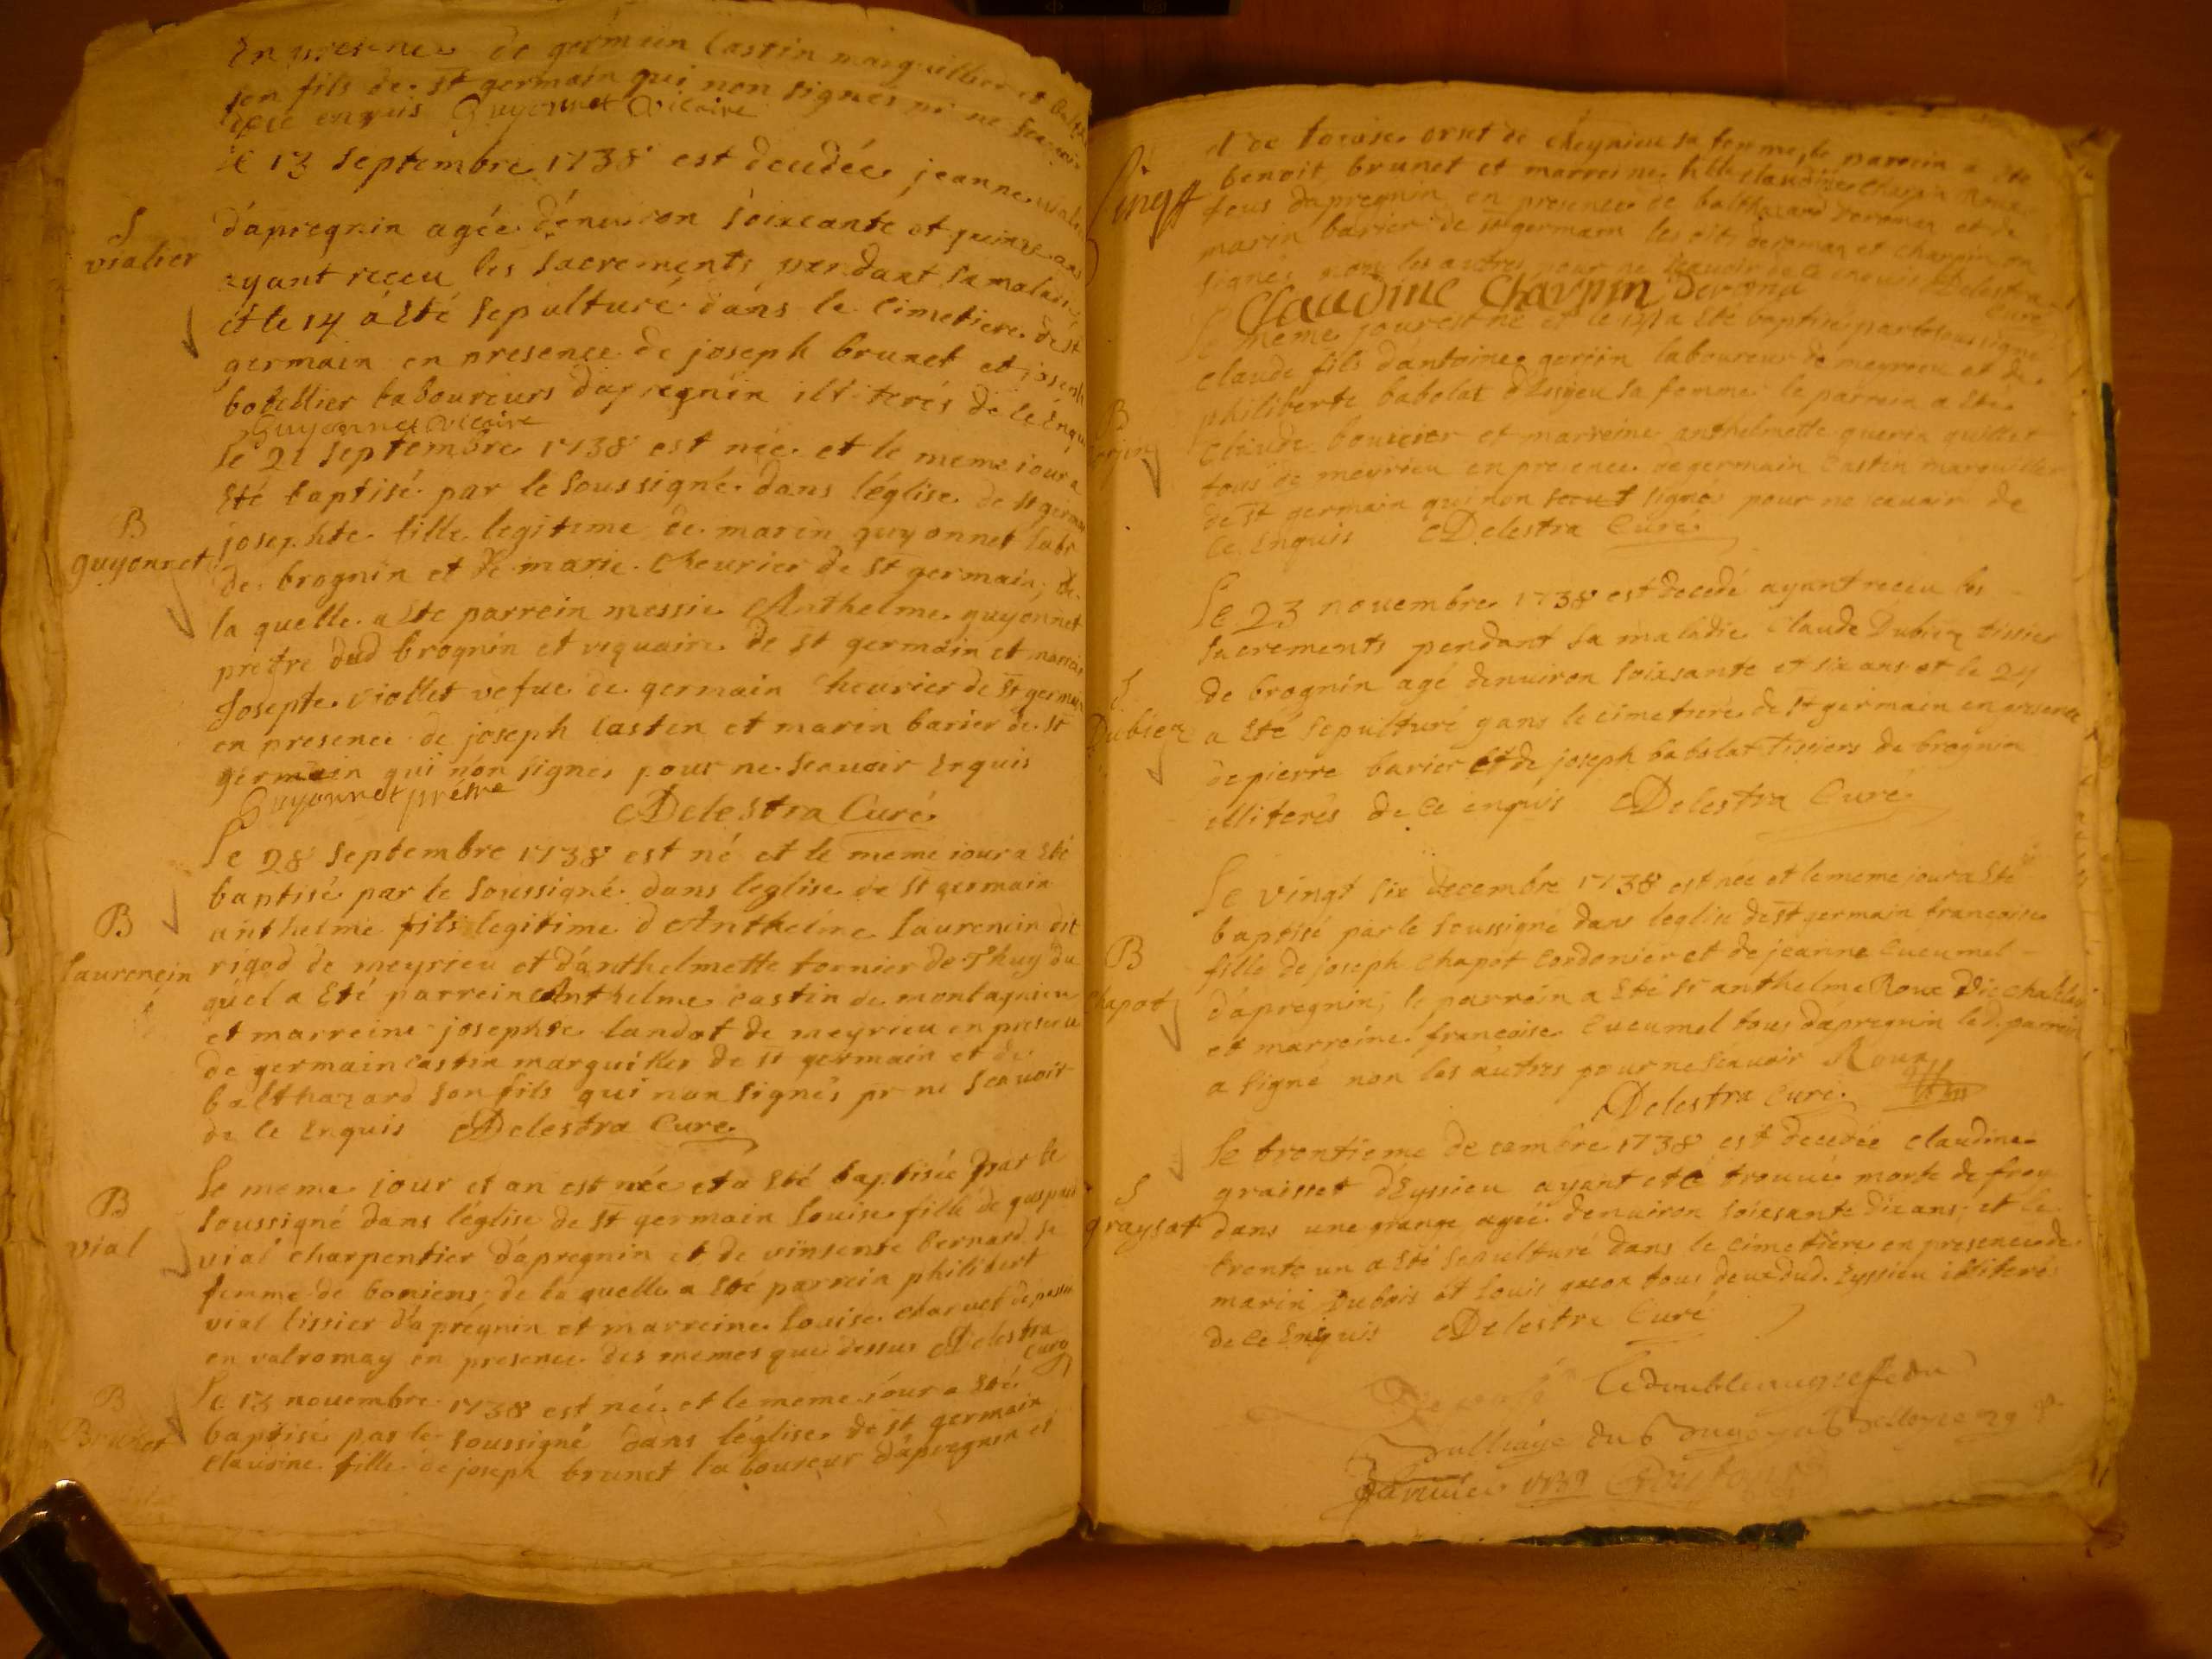 En presence de germain Castin marguillier et
son fils de st germain qui non signés ne
de ce enquis Guyonnet vicaire
Le 13 septembre 1738 est decedée jeanne
S
vialier
d'apregnin agée d'enuiron soixante et quinze ans
ayant receu les sacrements pendant sa maladie
et le 14 a été sepulturé dans le cimetiere de st
germain en presence de joseph brunet et joseph
laboureurs d'apregnin illiterés de ce enquis
Guyonnet vicaire
Le 21 septembre 1738 est née et le meme iour a
été baptisé par le soussigné dans l'église de st germain
B
guyonnet
josephte fille legitime de marin guyonnet
de brognin et de marie cheurier de st germain, de
la quelle a ete parrein messire Anthelme guyonnet
pretre dud brognin et viquaire de st germain et
Josepte viollet vefue de germain cheurier de st germain
en presence de joseph castin et marin barier de st
germain qui non signés pour ne scauoir enquis
Guyonnet pretre
Delestra Curé
Le 28 septembre 1738 est né et le meme iour a été
baptisé par le soussigné dans l'eglise de st germain
B
Laurencin
anthelme fils legitime d'Anthelme Laurencin dit
rigod de meyrieu et d'anthelmette fornier de Thuy du
quel a été parrein Anthelme castin de montagnieu
et marreine josephte landot de meyrieu en presence
de germain castin marguiller de st germain et de
balthazard son fils qui non signés pr ne scauoir
de ce enquis Delestra Curé
Le meme iour et an est née et a été baptisée par le
B
vial
soussigné dans l'église de st germain Louise fille de gaspard
vial charpentier d'apregnin et de vinsente bernard sa
femme de boniens de la quelle a été parrein philibert
vial tissier d'apregnin et marreine Louise charuet de
en valromay en presence des memes que dessus Delestra
Curé
Le 13 nouembre 1738 est née et le meme iour a été
B
Brunet
baptisée par le soussigné dans l'église de st germain
claudine fille de joseph brunet laboureur d'apregnin et
et de Louise ornet de cheynieu sa femme, le parrein a été
benoit brunet et marreine claudine charpin
tous d'apregnin en presence de balthazard et de
marin barier de st germain les dits et charpin on
signés non les autres pour ne scauoir de ce enquis Delestra
Curé
Claudine Charpin
Le meme jour est né et le a été baptisé par le soussigné
claude fils d'antoine gorjin laboureur de meyrieu et de
B
gorjin
philiberte babolat d'Essyeu sa femme le parrein a été
Claude bouuier et marreine anthelmette guerin
tous de meyrieu en presence de germain Castin marguiller
de st germain qui non signés pour ne scauoir de
ce enquis Delestra Curé
Le 23 nouembre 1738 est decedé ayant receu les
sacrements pendant sa maladie claude Dubiez tissier
de brognin agé denuiron soixsante et six ans et le 24
S
Dubiez
a été sepulturé dans le cimetiere de st germain en presence
de pierre barier et de joseph babolat tissiers de brognin
illiterés de ce enquis Delestra Curé
Le vingt six decembre 1738 est née et le meme jour a été
baptisé par le soussigné dans leglise de st germain francoise
B
Chapot
fille de joseph chapot cordonier et de jeanne cucumel
d'apregnin, le parrein a été sr anthelme Roux
et marreine francoise Cucumel tous d'apregnin led. parrein
a signé non les autres pour ne scauoir Roux
Delestra Curé
Le trentieme decembre 1738 est decedée claudine
graisset d'Eyssieu ayant eté trouuée morte de froy
S
graysat
dans une grange agée denuiron soixsante dix ans; et le
trente un a été sepulturé dans le cimetiere en presence de
marin Dubois et Louis tous deux dud. Eyssieu illiterés
de ce enquis Delestra Curé
Le double au greffe du
Bailliage du Bugey a Belley le 29
januier 1739